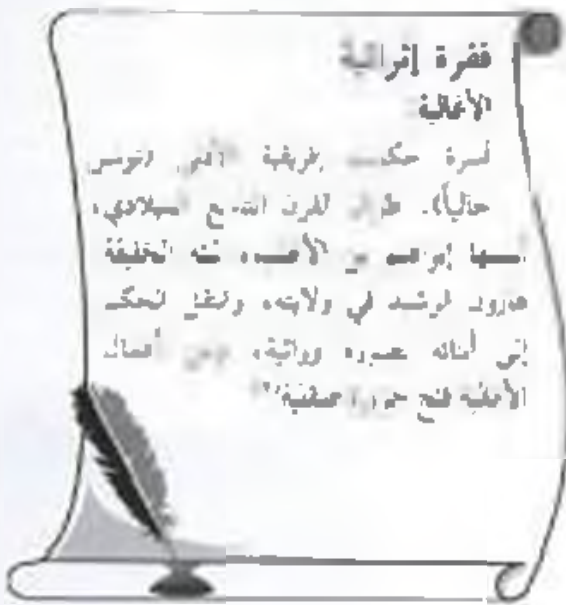 فقرة إثرائية
الأغالبة:
أسرة حكمت إفريقية (تونس
حالياً)، طوال القرن التاسع الميلادي،
أسسها إبراهيم بن الأغلب، ثبته الخليفة
هارون الرشيد في ولايته، وانتقل الحكم
إلى أبنائه بصورة وراثية، ومن أعمال
الأغالبة فتح جزيرة صقلية